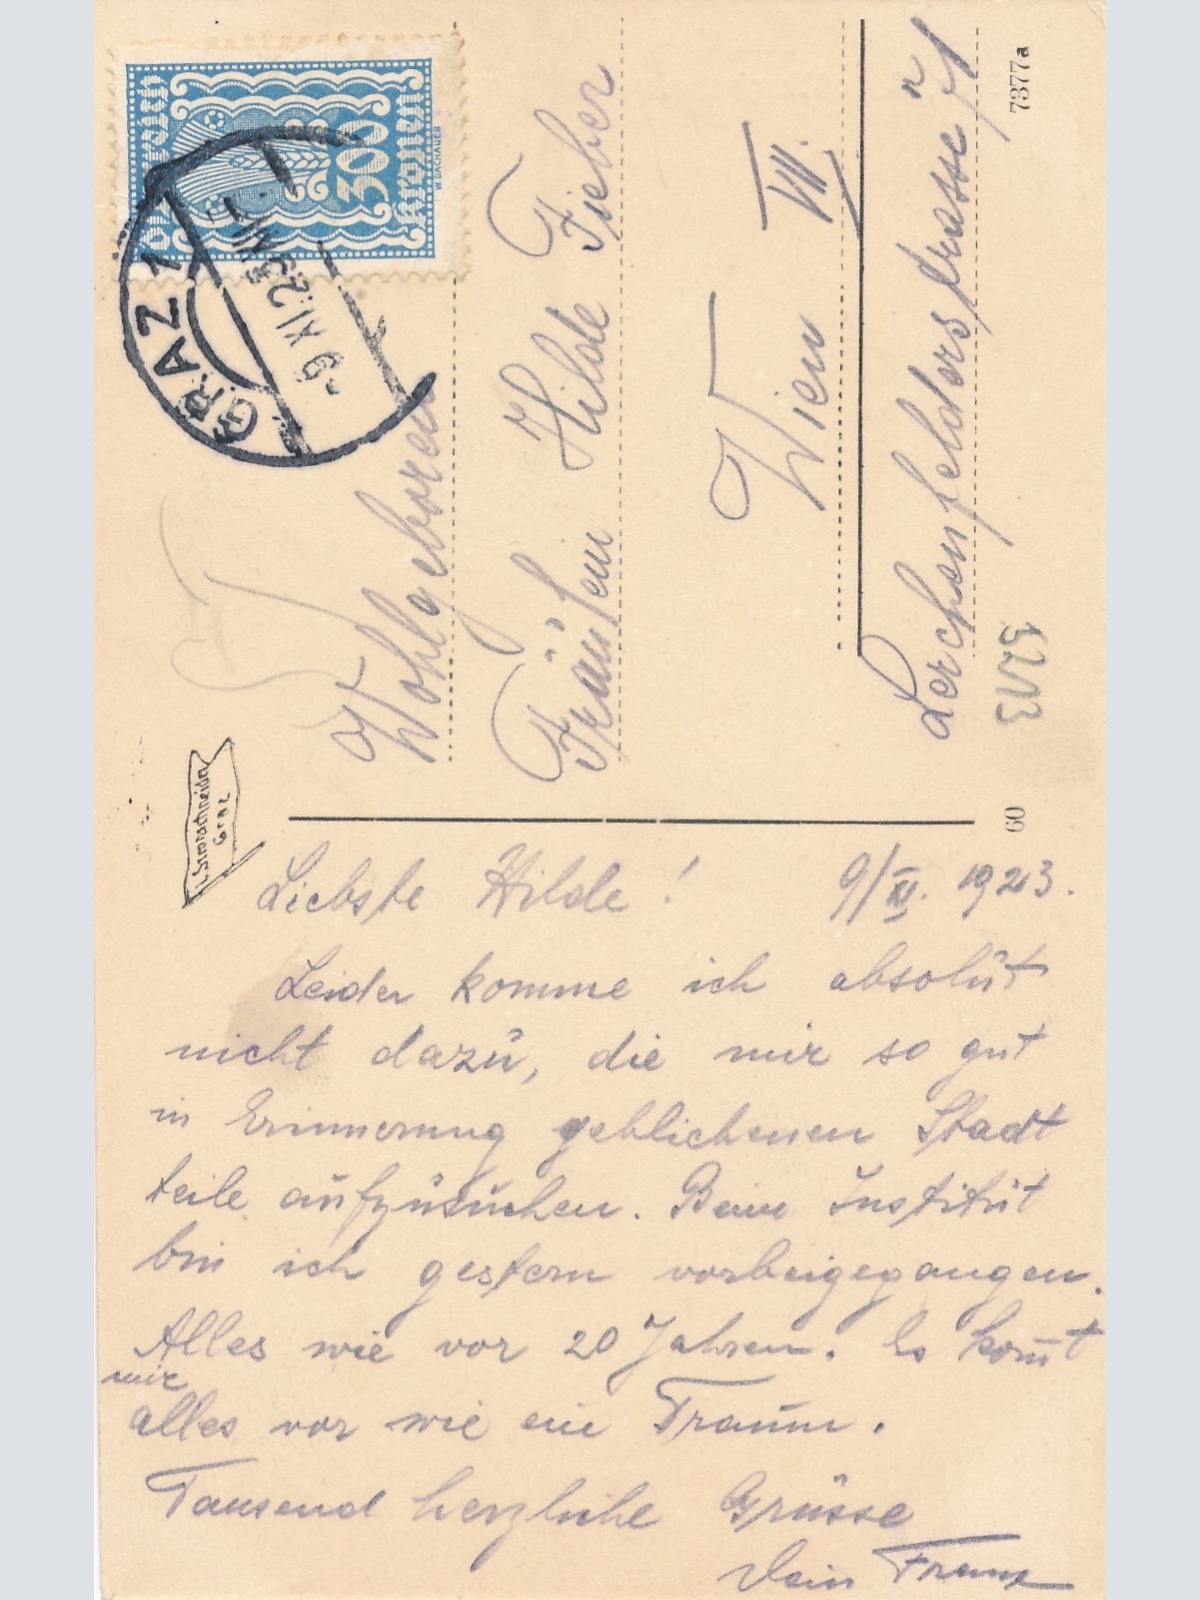 Österreich
300
Kronen
W. DACHAUER
GRAZ 1
-9 XI. 23
Wohlgeboren
Fräulein Hilde Fieber
Wien VII.
Lerchenfelderstrasse 71
7377a
60
Graz
Liebste Hilde! 9/XI. 1923.
Leider komme ich absolut
nicht dazu, die mir so gut
in Erinnerung geblichenen Stadt
teile aufzusuchen. Beim Institut
bin ich gestern vorbeigegangen.
Alles wie vor 20 Jahren. Es kom̄t
mir
alles vor wie ein Traum.
Tausend herzliche Grüsse
Dein Franz